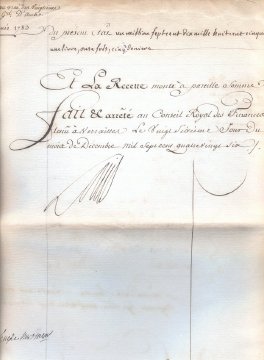 des Vingtièmes
1783
du présent état un million sept cent dix mille huit cent cinq
onze sols, cinq deniers
Et La Recette monte a pareille somme
fait & arrêté au Conseil Royal des finances
tenu à Versailles Le Vingt sixieme Jour du
mois de Decembre mil sept cent quatre vingt six /.
Louis